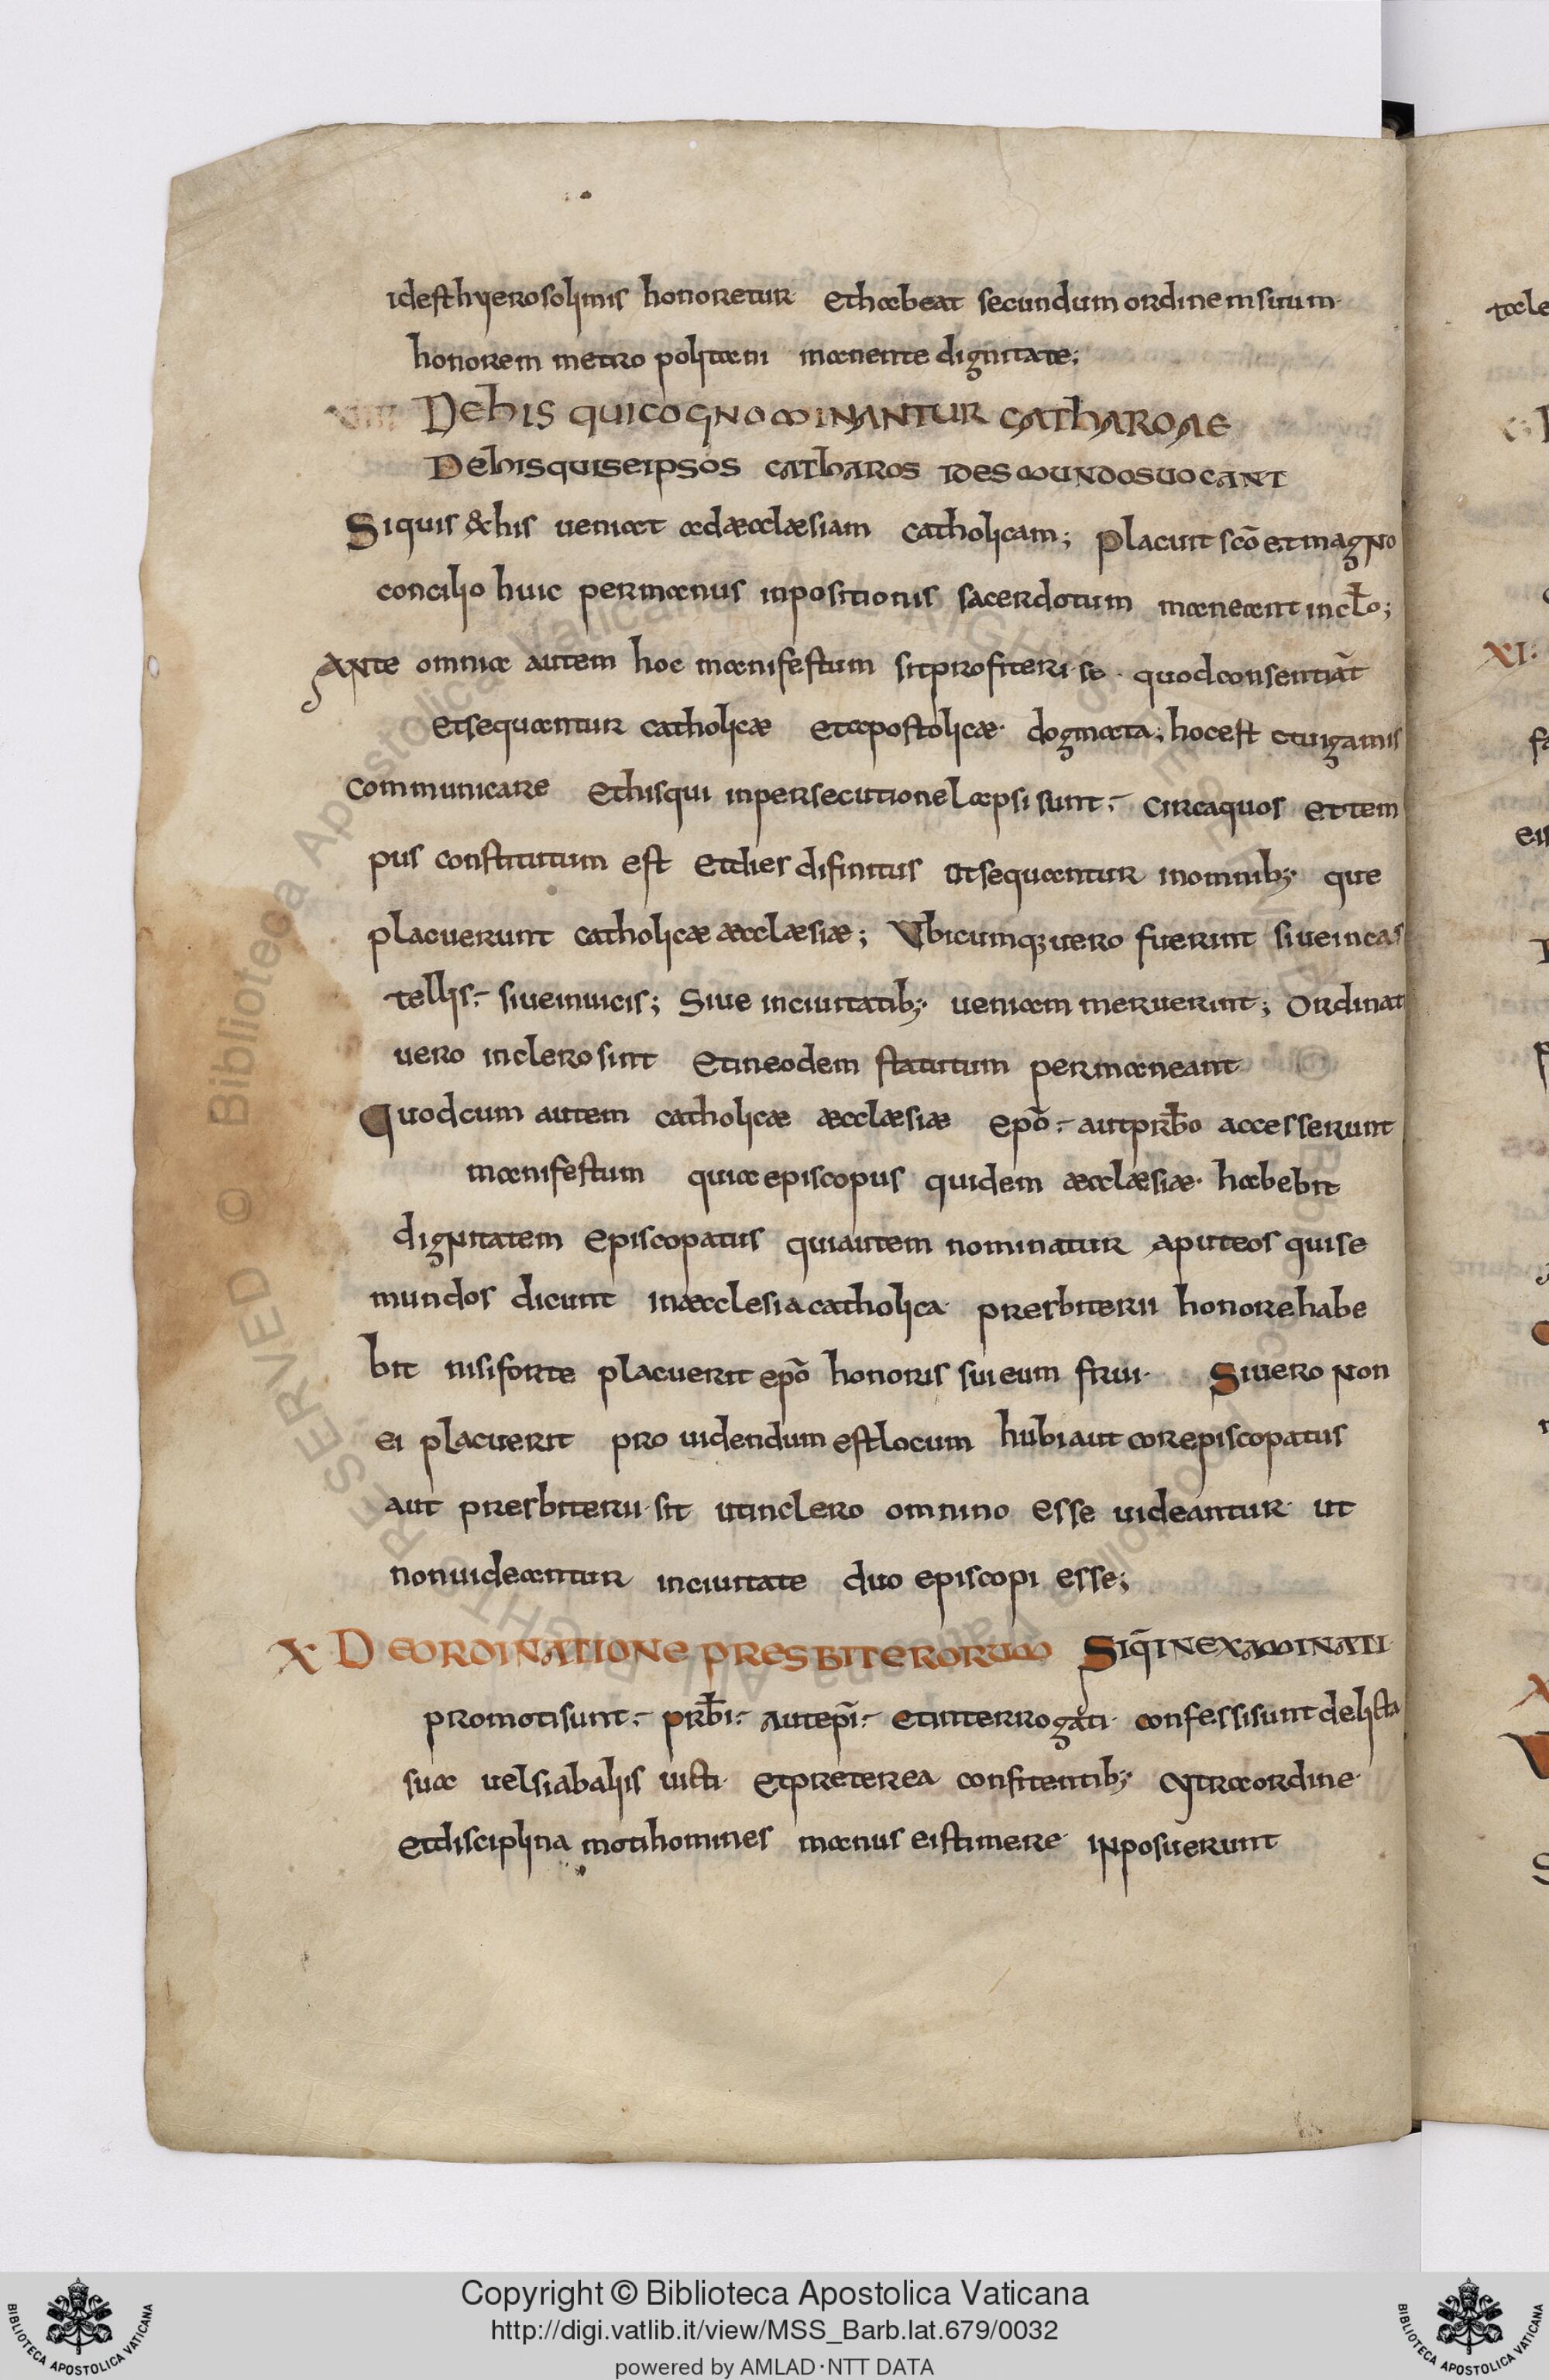 idest hyerosolimis honoretur et habeat secundum ordinem suum
honorem metropolitani manente dignitate;
DE his qui cognominantur catharoae
De his qui se ipsos catharos id es mundos uocant
Si quis & his ueniat ad aecclaesiam catholicam; placuit scō et magno
concilio huic per manus inpositionis sacerdotum maneant in cłro;
Ante omnia autem hoc manifestum sit profiteri se · quod consentiāt
et sequantur catholicæ et apostolicæ · dogmata; hoc est et uigamis
communicare et his qui in persecutione lapsi sunt ;– circa quos et tem
pus constitutum est et dies difinitus ut sequantur in omnib; que
placuerunt catholicæ æcclæsiæ; Vbicumq; uero fuerint siue in cas
tellis ;– siue in uicis; Siue in ciuitatib; ueniam meruerint; Ordinat
uero in clero sint et in eodem statutum permaneant
Quodcum autem catholicæ æcclæsiæ epō ;– aut prb̄o accesserunt
manifestum quia episcopus quidem æcclæsiæ · habebit
dignitatem episcopatus qui autem nominatur aput eos qui se
mundos dicunt in æcclesia catholica presbiterii honore habe
bit nisi forte placuerit epō honoris sui eum frui · Si uero non
ei placuerit prouidendum est locum hubi aut corepiscopatus
aut presbiterii · sit ut in clero omnino esse uideantur · ut
non uideantur in ciuitate duo episcopi esse;
X DE ordinatione presbiterorum Si q̄ inexaminati
promoti sunt ;– prb̄i ;– aut epī ;– et interrogati · confessi sunt delicta
sua uel si ab aliis uicti · et preterea confitentib; cytra ordine ·
et disciplina moti homines manus eis timere · inposuerunt
Copyright © Biblioteca Apostolica Vaticana
http://digi.vatlib.it/view/MSS_Barb.lat.679/0032
powered by AMLAD·NTT DATA
BIBLIOTECA APOSTOLICA VATICANA
BIBLIOTECA APOSTOLICA VATICANA